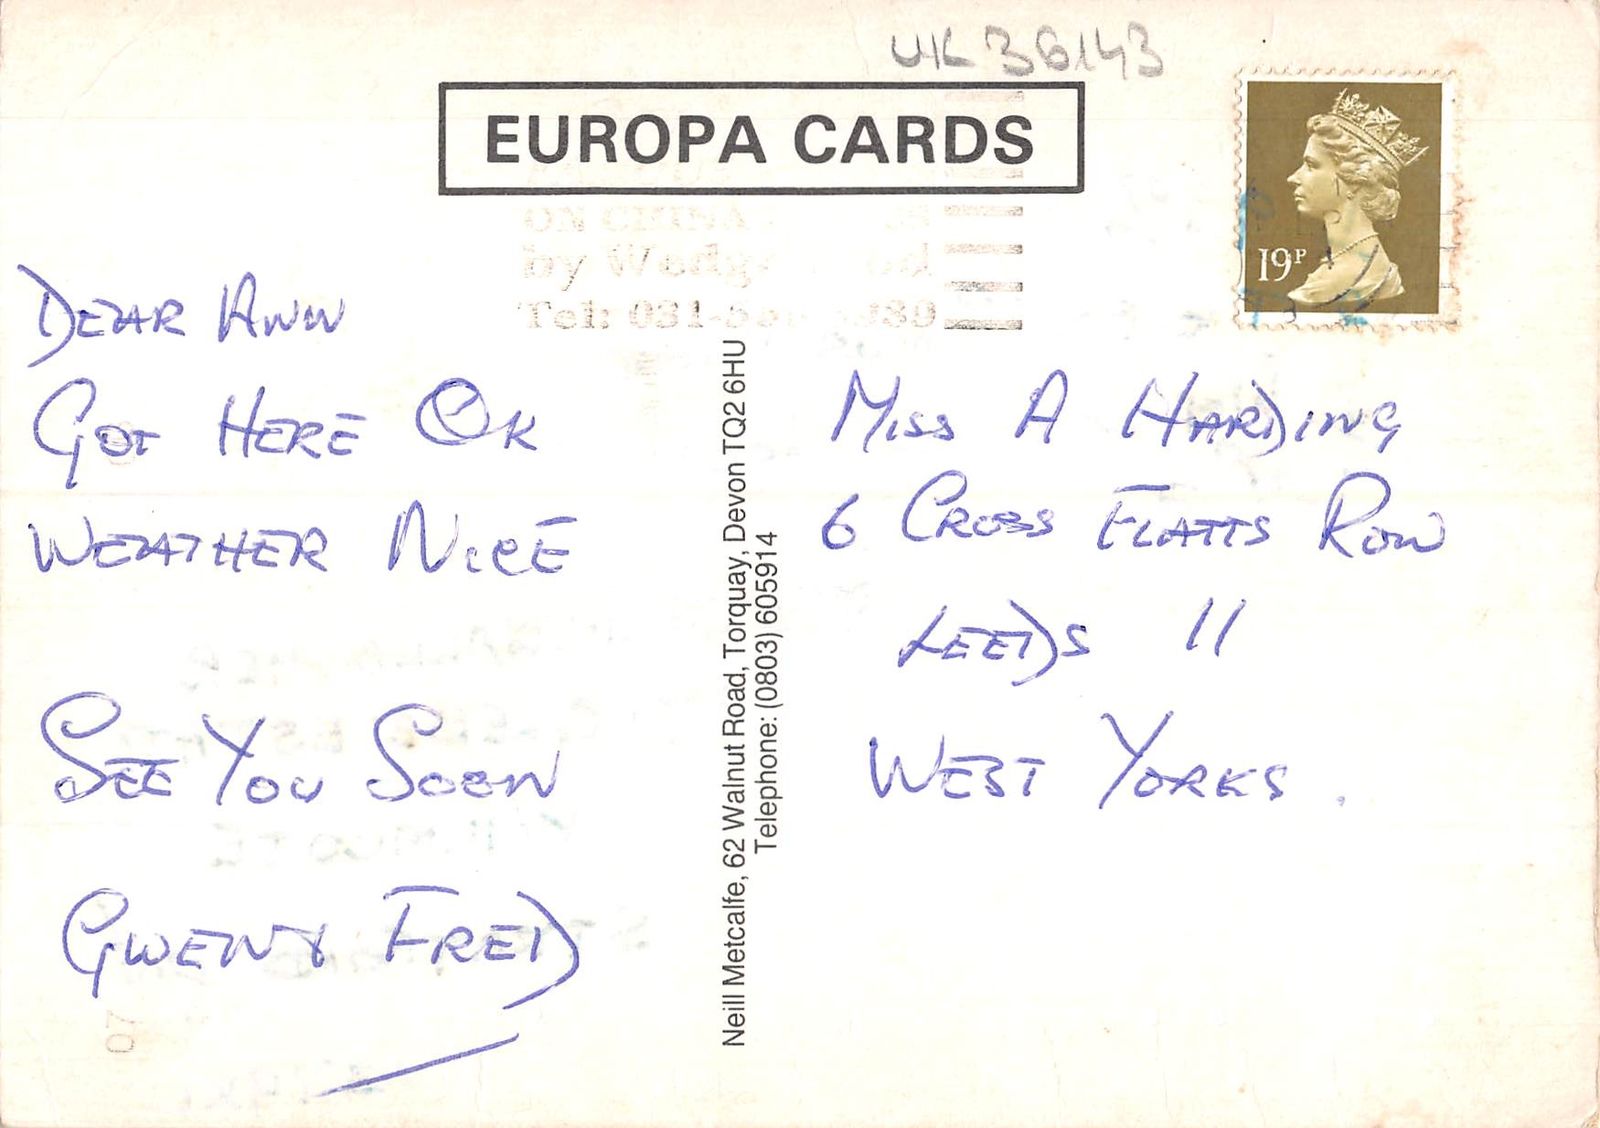 UK 36143
EUROPA CARDS
ON CHINA
by Wedg od
Tel: 031-
19P
DEAR ANN
GOT HERE OK
WEATHER NICE
SEE YOU SOON
GWEN & FRED
Neill Metcalfe, 62 Walnut Road, Torquay, Devon TQ2 6HU
Telephone: (0803) 605914
MISS A HARDING
6 CROSS FLATTS ROW
LEEDS 11
WEST YORKS.
07